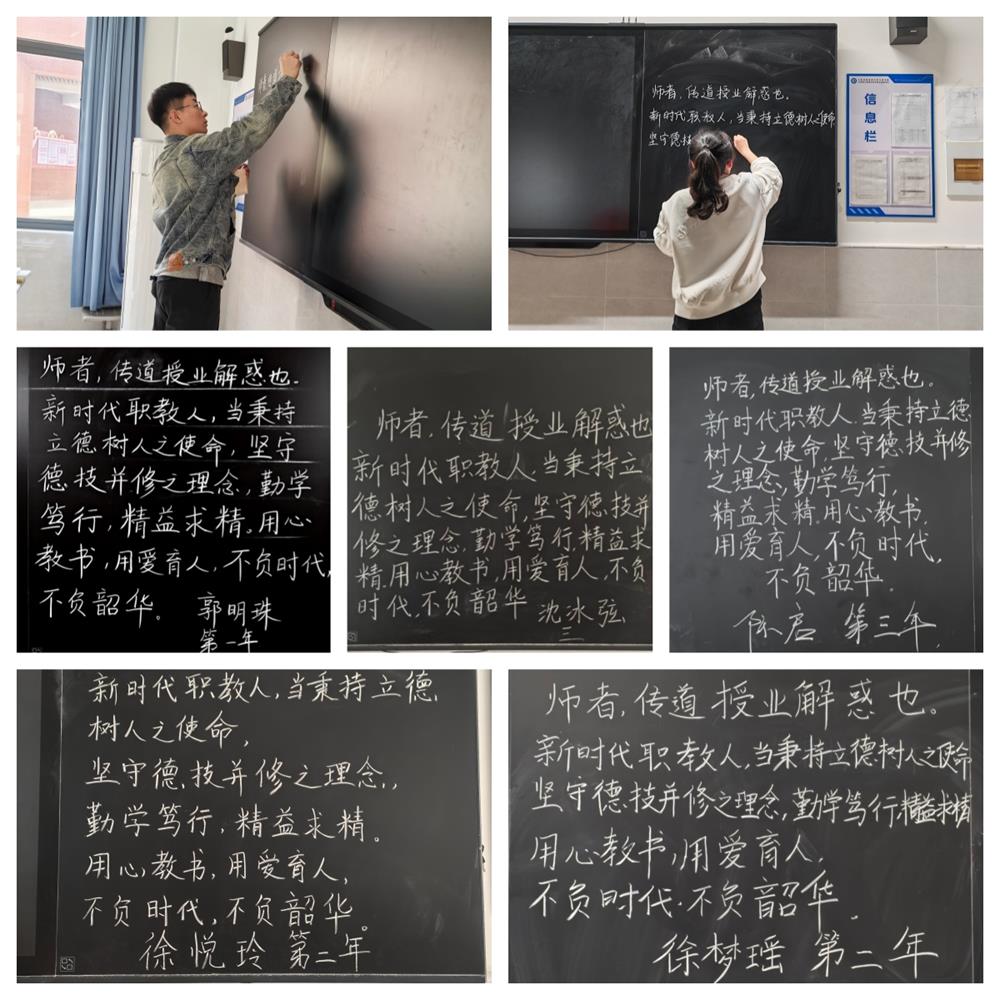 师者，传道授业解惑也。
新时代职教人，当秉持立德树人之使命
坚守德技
信息栏
师者，传道授业解惑也.
新时代职教人，当秉持
立德树人之使命，坚守
德、技并修之理念，勤学
笃行，精益求精。用心
教书，用爱育人，不负时代，
不负韶华。 郭明珠
第一年
师者，传道授业解惑也
新时代职教人.当秉持立
德树人之使命，坚守德、技并
修之理念.勤学笃行.精益求
精.用心教书，用爱育人，不负
时代，不负韶华 沈冰弦
三
师者，传道授业解惑也。
新时代职教人.当秉持立德
树人之使命，坚守德、技并修
之理念，勤学笃行，
精益求精.用心教书.
用爱育人，不负时代，
不负韶华.
陈启 第三年.
新时代职教人，当秉持立德、
树人之使命，
坚守德、技并修之理念，
勤学笃行，精益求精。
用心教书，用爱育人，
不负时代，不负韶华。
徐悦玲 第二年
师者，传道授业解惑也。
新时代职教人，当秉持立德树人之使命
坚守德、技并修之理念，勤学笃行，精益求精
用心教书，用爱育人，
不负时代.不负韶华.
徐梦瑶 第二年